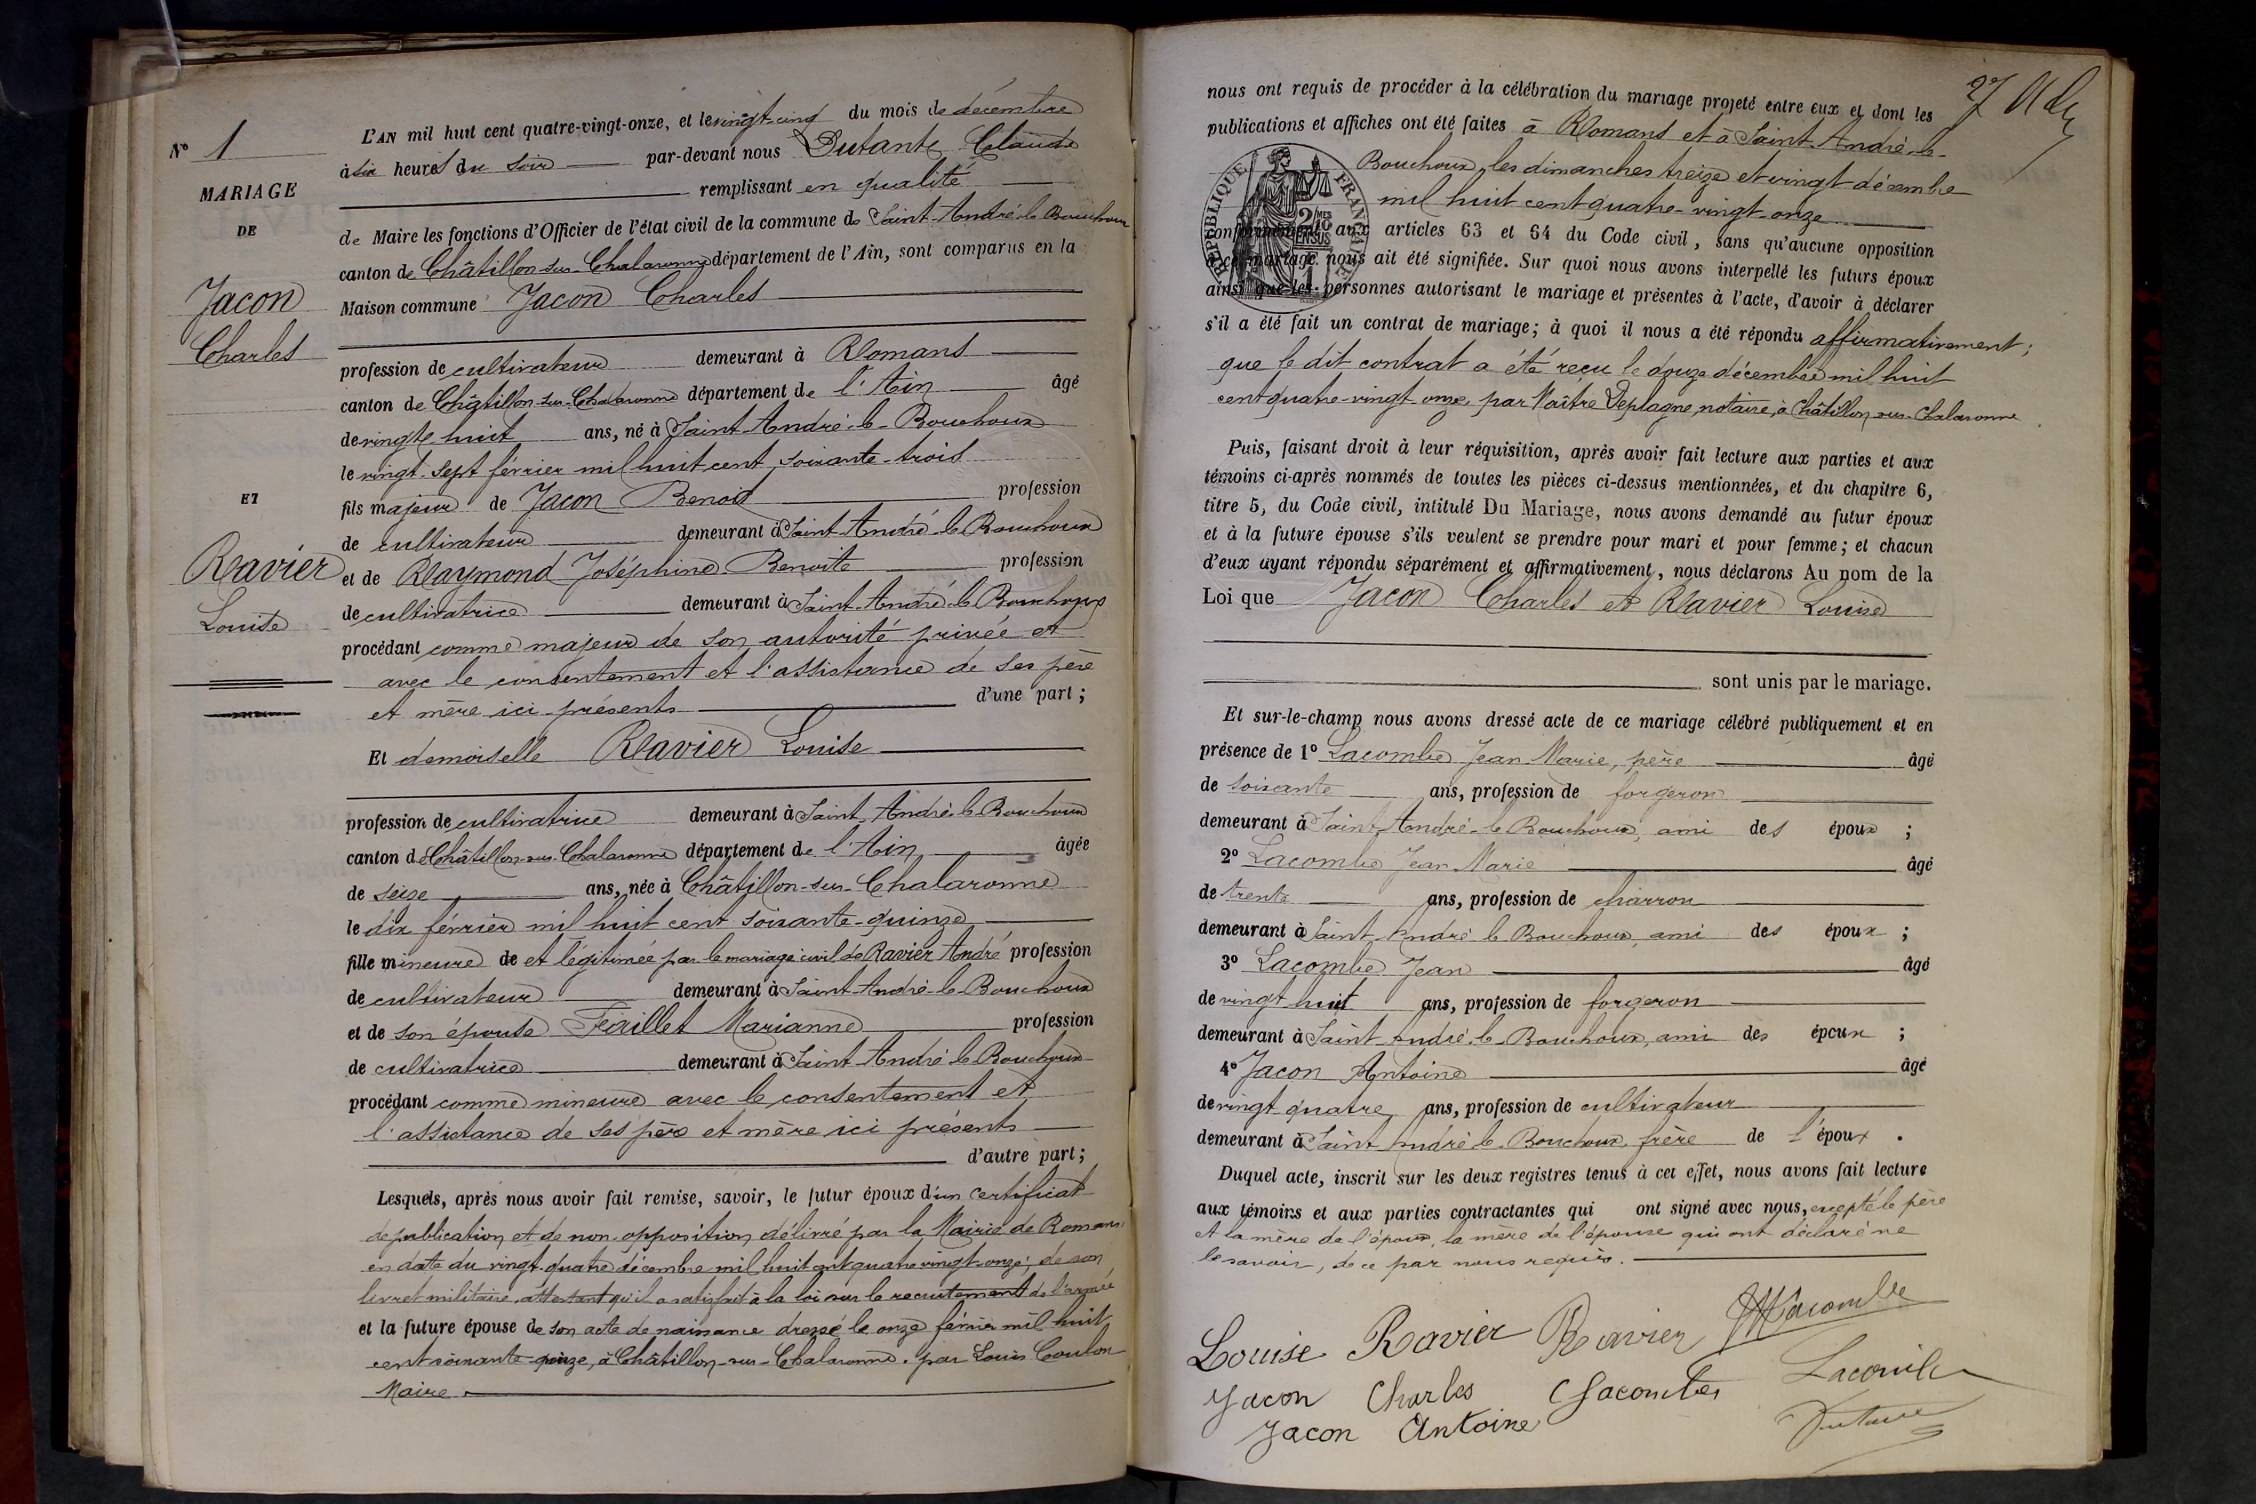 N° 1
MARIAGE
DE
Jacon
Charles
ET
Ravier
Louise
L'AN mil huit cent quatre-vingt-onze, et le vingt-cinq du mois de décembre
à six heures du soir par-devant nous Dutante Claude
remplissant en qualité
de Maire les fonctions d'Officier de l'état civil de la commune de Saint-André-le-Bouchoux
canton de Châtillon-sur-Chalaronne département de l'Ain, sont comparus en la
Maison commune Jacon Charles
profession de cultivateur demeurant à Romans
canton de Châtillon-sur-Chalaronne département de l'Ain âgé
de vingt-huit ans, né à Saint-André-le-Bouchoux
le vingt-sept février mil huit cent soixante-trois
fils majeur de Jacon Benoit profession
de cultivateur demeurant à Saint-André-le-Bouchoux
et de Raymond Joséphine Benoite profession
de cultivatrice demeurant à Saint-André-le-Bouchoux
procédant comme majeur de son autorité privée et
avec le consentement et l'assistance de ses père
et mère ici présents d'une part ;
Et demoiselle Ravier Louise
profession de cultivatrice demeurant à Saint-André-le-Bouchoux
canton de Châtillon-sur-Chalaronne département de l'Ain âgée
de seize ans, née à Châtillon-sur-Chalaronne
le dix février mil huit cent soixante-quinze
fille mineure de et légitimée par le mariage civil de Ravier André profession
de cultivateur demeurant à Saint-André-le-Bouchoux
et de son épouse Féaillet Marianne profession
de cultivatrice demeurant à Saint-André-le-Bouchoux
procédant comme mineure avec le consentement et
l'assistance de ses père et mère ici présents
d'autre part ;
Lesquels, après nous avoir fait remise, savoir, le futur époux d'un certificat
de publication et de non-opposition délivré par la Mairie de Romans
en date du vingt-quatre décembre mil huit cent quatre vingt-onze, de son
livret militaire attestant qu'il a satisfait à la loi sur le recrutement de l'armée
et la future épouse de son acte de naissance dressé le onze février mil huit
cent soixante-quinze, à Châtillon-sur-Chalaronne, par Louis Coulon
Maire.
nous ont requis de procéder à la célébration du mariage projeté entre eux et dont les
publications et affiches ont été faites à Romans et à Saint-André-le-
Bouchoux, les dimanches treize et vingt décembre
mil huit cent quatre-vingt-onze
RÉPUBLIQUE FRANÇAISE
2/10MES
EN SUS
conformément aux articles 63 et 64 du Code civil, sans qu'aucune opposition
à ce mariage nous ait été signifiée. Sur quoi nous avons interpellé les futurs époux
ainsi que les personnes autorisant le mariage et présentes à l'acte, d'avoir à déclarer
s'il a été fait un contrat de mariage ; à quoi il nous a été répondu affirmativement ;
que le dit contrat a été reçu le douze décembre mil huit
cent quatre-vingt-onze, par Maître Deplagne, notaire, à Châtillon-sur-Chalaronne
Puis, faisant droit à leur réquisition, après avoir fait lecture aux parties et aux
témoins ci-après nommés de toutes les pièces ci-dessus mentionnées, et du chapitre 6,
titre 5, du Code civil, intitulé Du Mariage, nous avons demandé au futur époux
et à la future épouse s'ils veulent se prendre pour mari et pour femme ; et chacun
d'eux ayant répondu séparément et affirmativement, nous déclarons Au nom de la
Loi que Jacon Charles et Ravier Louise
sont unis par le mariage.
Et sur-le-champ nous avons dressé acte de ce mariage célébré publiquement et en
présence de 1° Lacombe Jean Marie, père âgé
de soixante ans, profession de forgeron
demeurant à Saint-André-le-Bouchoux, ami des époux ;
2° Lacombe Jean Marie âgé
de trente ans, profession de charron
demeurant à Saint-André-le-Bouchoux, ami des époux ;
3° Lacombe Jean âgé
de vingt-huit ans, profession de forgeron
demeurant à Saint-André-le-Bouchoux, ami des époux ;
4° Jacon Antoine âgé
de vingt-quatre ans, profession de cultivateur
demeurant à Saint-André-le-Bouchoux, frère de l'époux.
Duquel acte, inscrit sur les deux registres tenus à cet effet, nous avons fait lecture
aux témoins et aux parties contractantes qui ont signé avec nous, excepté le père
et la mère de l'époux, la mère de l'épouse qui ont déclaré ne
le savoir, de ce par nous requis.
Louise Ravier Ravier JMLacombe
Jacon Charles Lacombe
Jacon Antoine